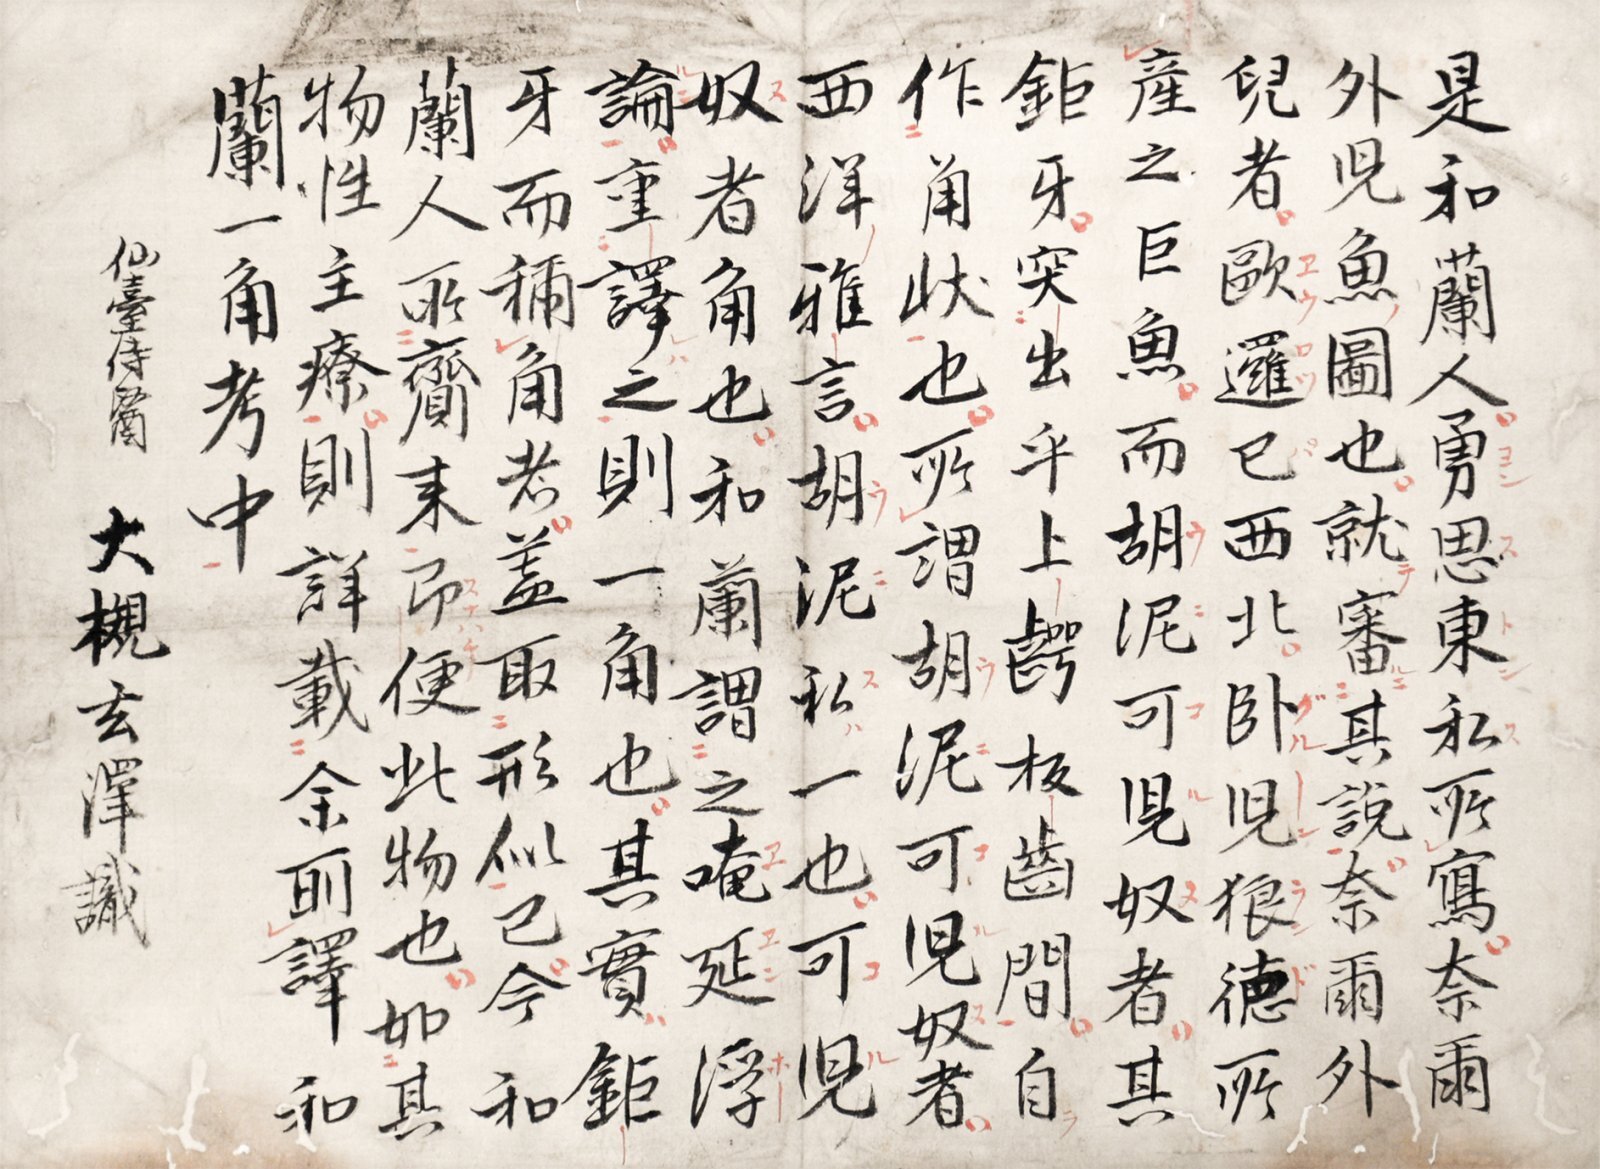 是和蘭人勇思東私所寫奈爾
外児魚圖也就審其說奈爾外
兒者歐邏巴西北臥児狼德所
産之巨魚而胡泥可児奴者其
鉅牙突出乎上齶板齒間自
作角狀也所謂胡泥可児奴者
西洋雅言胡泥私一也可児
奴者角也和蘭謂之唵延浮
論重譯之則一角也其實鉅
牙而稱角者蓋取形似已今和
蘭人所齎来即便此物也如其
物性主療則詳載余所譯和
蘭一角考中
仙臺侍醫 大槻玄澤識